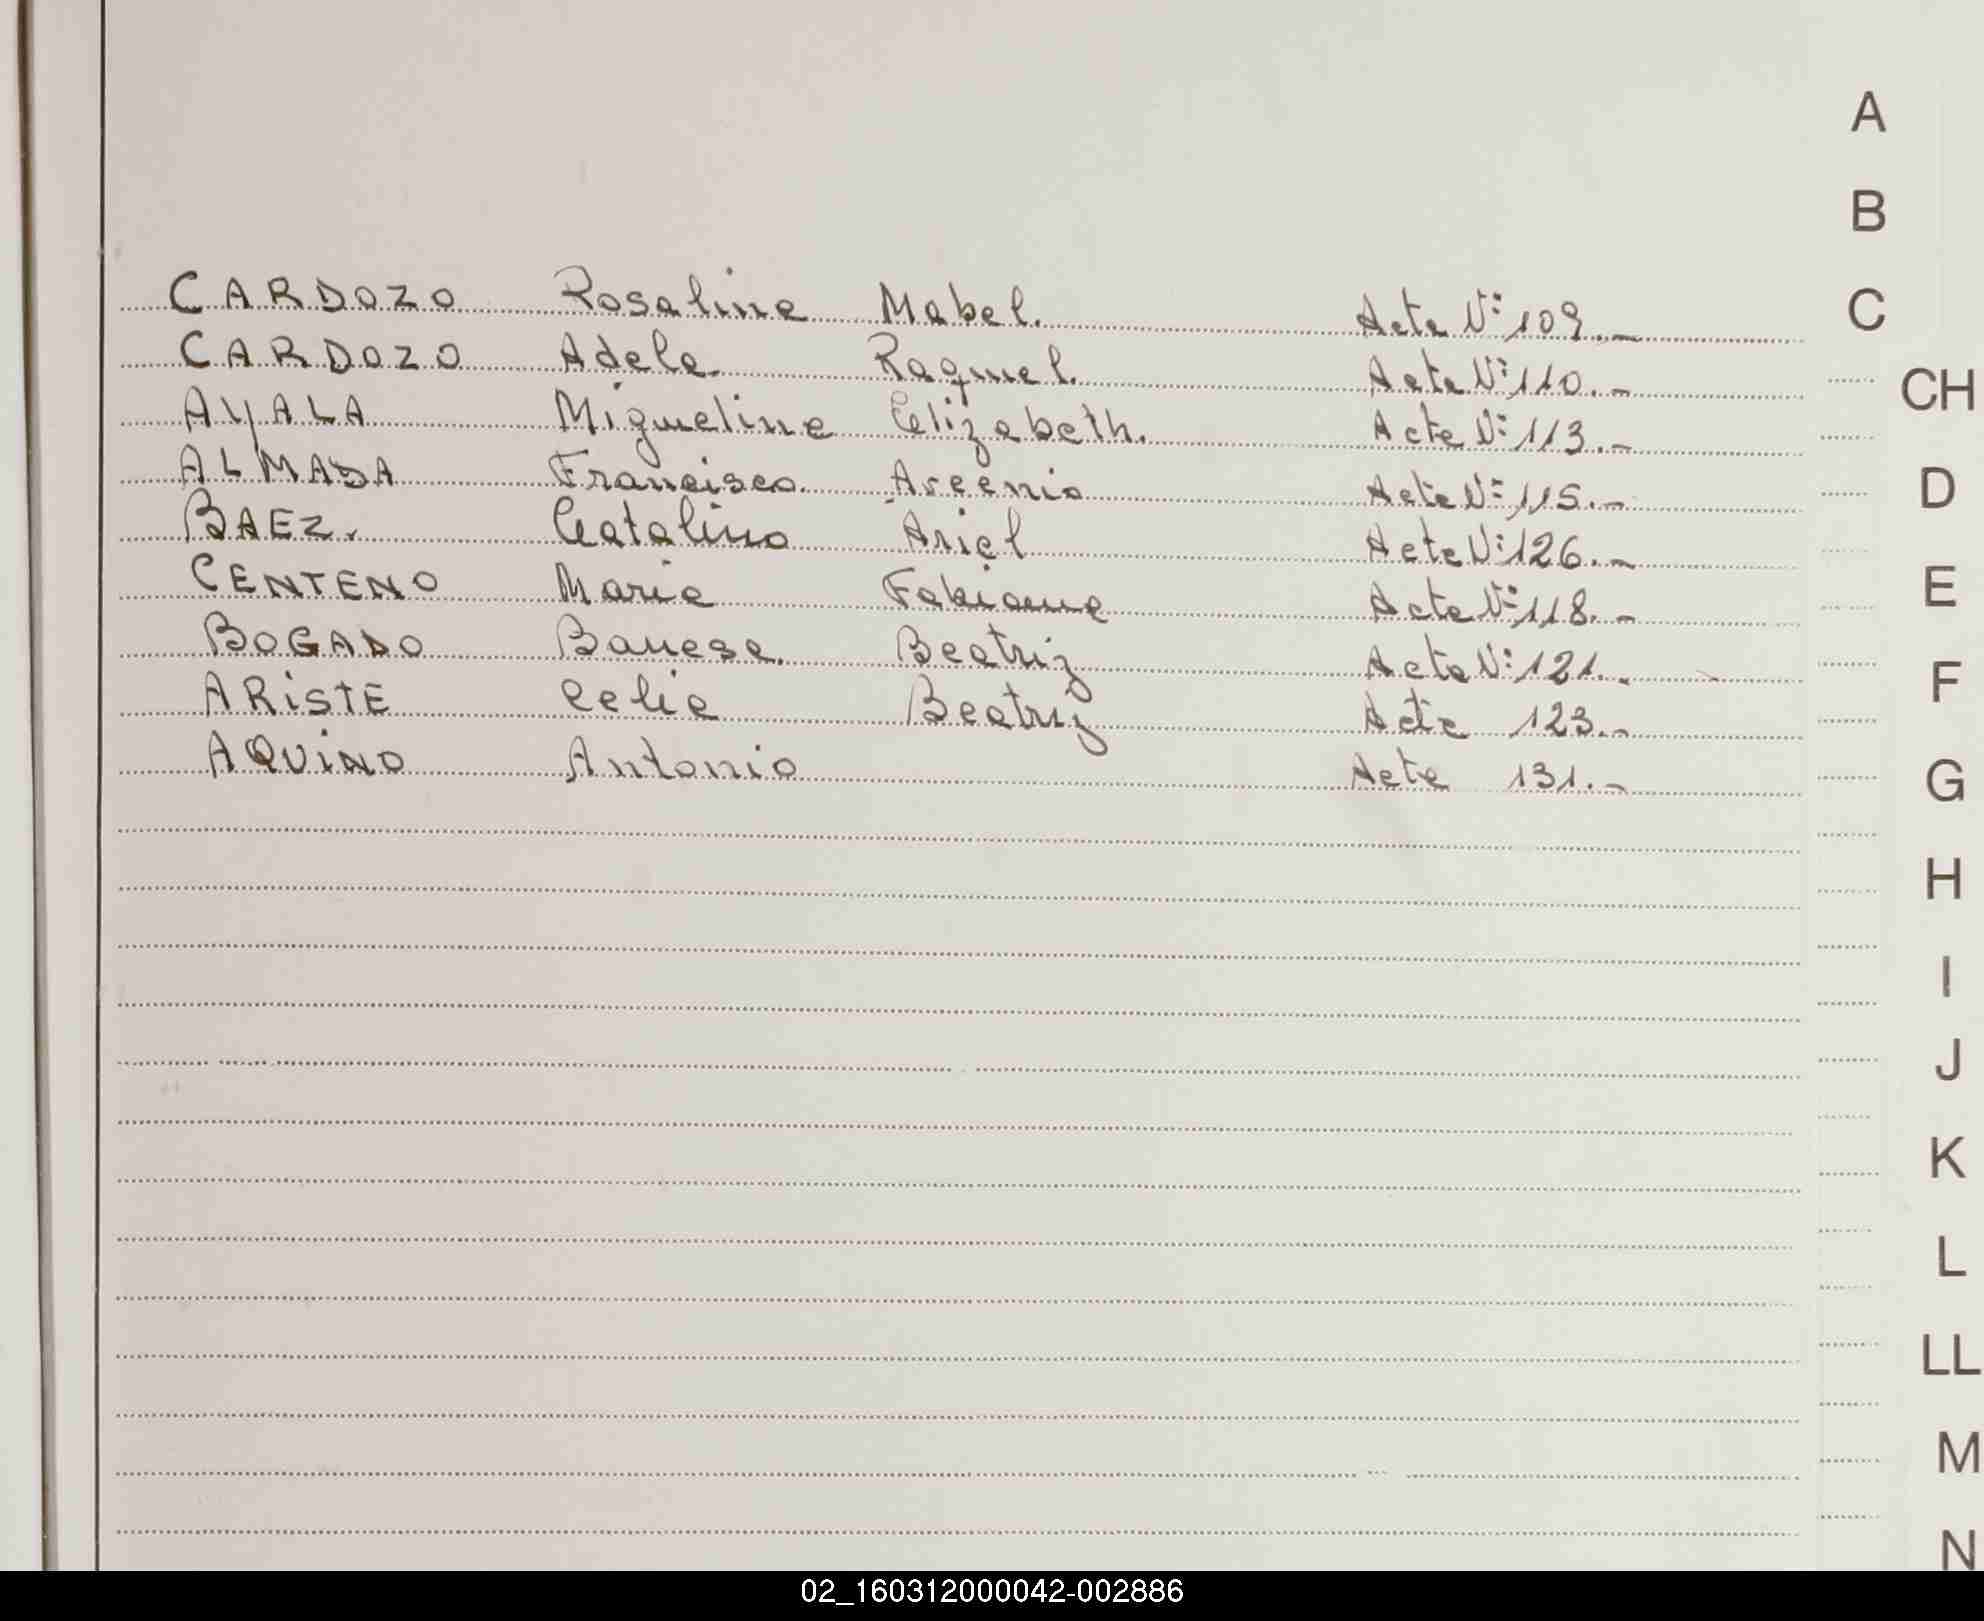 A
B
CARDOZO Rosalina Mabel. Acta Nº 109.-
C
CARDOZO Adela Raquel. Acta Nº 110.-
CH
AYALA Miguelina Elizabeth. Acta Nº 113.-
ALMADA Francisco Arcenio Acta Nº 115.-
D
BAEZ. Catalino Ariel Acta Nº 126.-
CENTENO Maria Fabiana Acta Nº 118.-
E
BOGADO Beatriz Acta Nº 121.-
F
ARiSTE Celia Beatriz Acta 123.-
AQUiNO Antonio Acta 131.-
G
H
I
J
K
L
LL
M
N
02_160312000042-002886